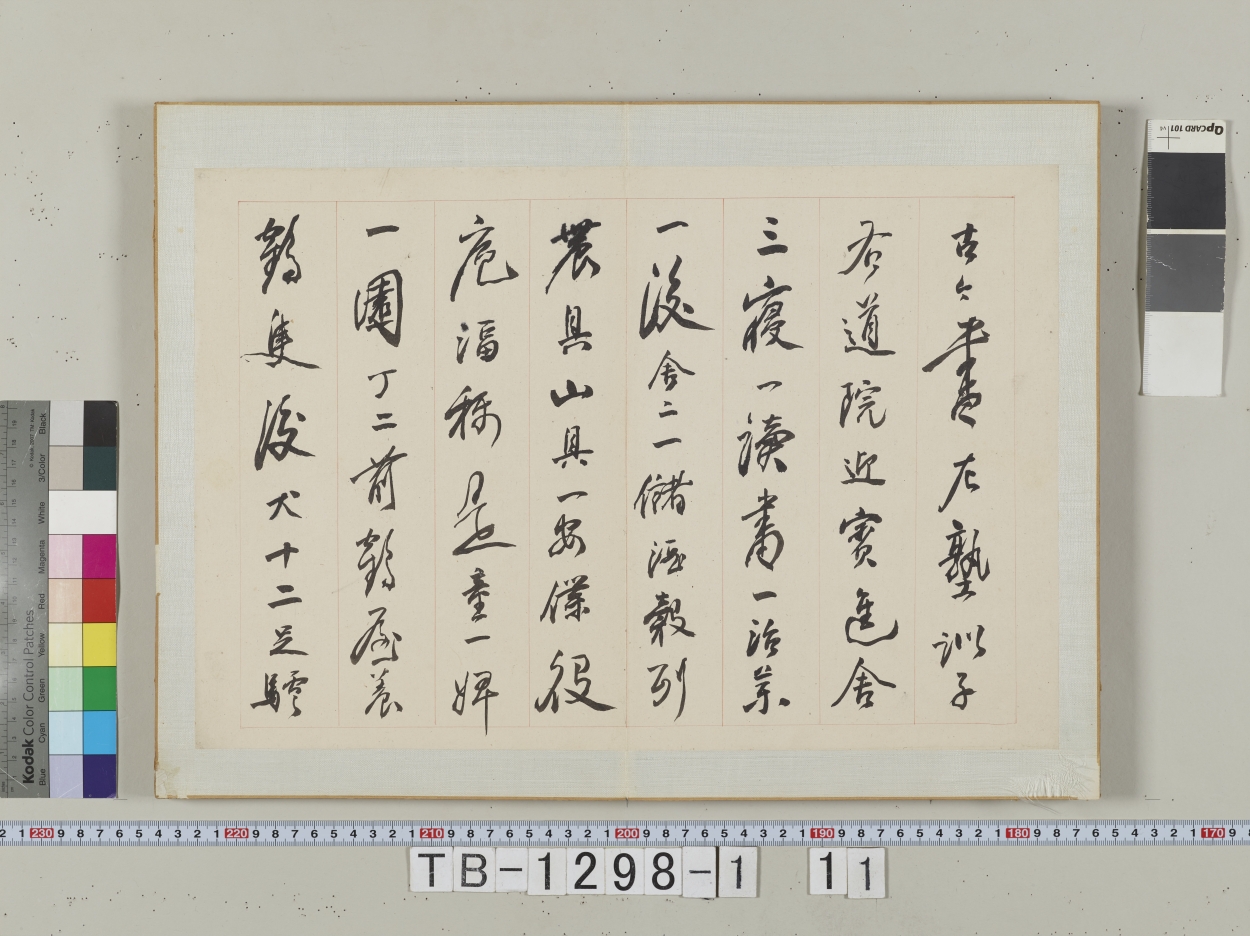 古今書畫左塾訓子
右道院迎賓進舍
三寢一讀書一治藥
一後舍二一儲酒穀列
農具山具一安僕役
庖湢稱是童一婢
一園丁二前鶴屋養
鶴隻後犬十二足驢
QPCARD 101 v4
Kodak Color Control Patches
Blue Cyan Green Yellow Red Magenta White 3/Color Black
2 1 230 9 8 7 6 5 4 3 2 1 220 9 8 7 6 5 4 3 2 1 210 9 8 7 6 5 4 3 2 1 200 9 8 7 6 5 4 3 2 1 190 9 8 7 6 5 4 3 2 1 180 9 8 7 6 5 4 3 2 1 170 9
TB-1298-1 11